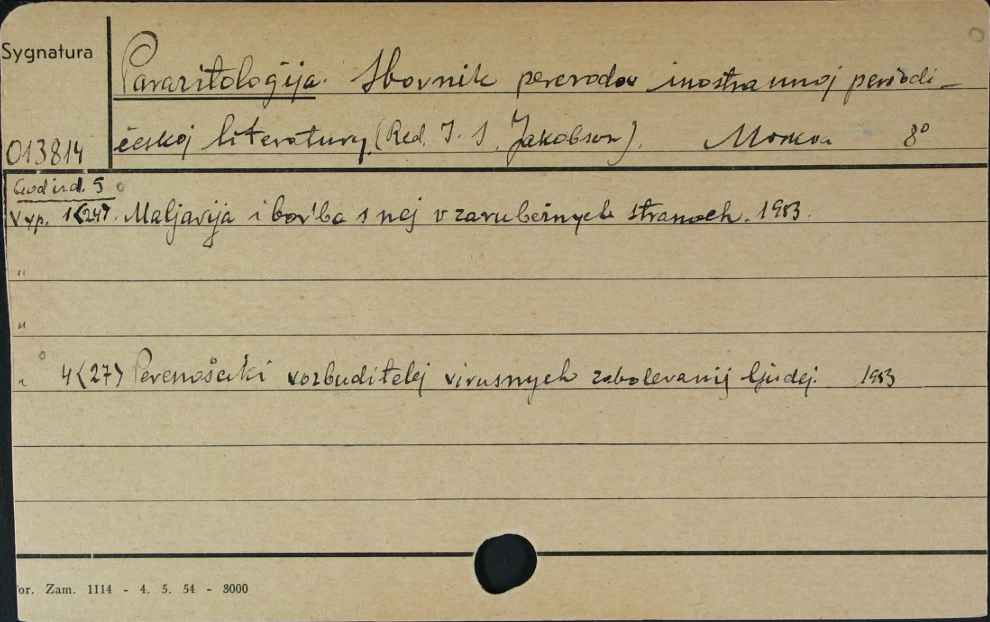 Sygnatura
Parazitologija. Sbornik perevodov inostrannoj periodi-
českoj literatury. (Red. I. S. Jakobson). Moskva 8°
013814
God izd. 5
Vyp. 1<24>. Maljarija i bor'ba s nej v zarubežnych stranach. 1953.
"
"
" 4<27> Perenosčiki vozbuditelej virusnych zabolevanij ljudej. 1953
or. Zam. 1114 - 4. 5. 54 - 3000